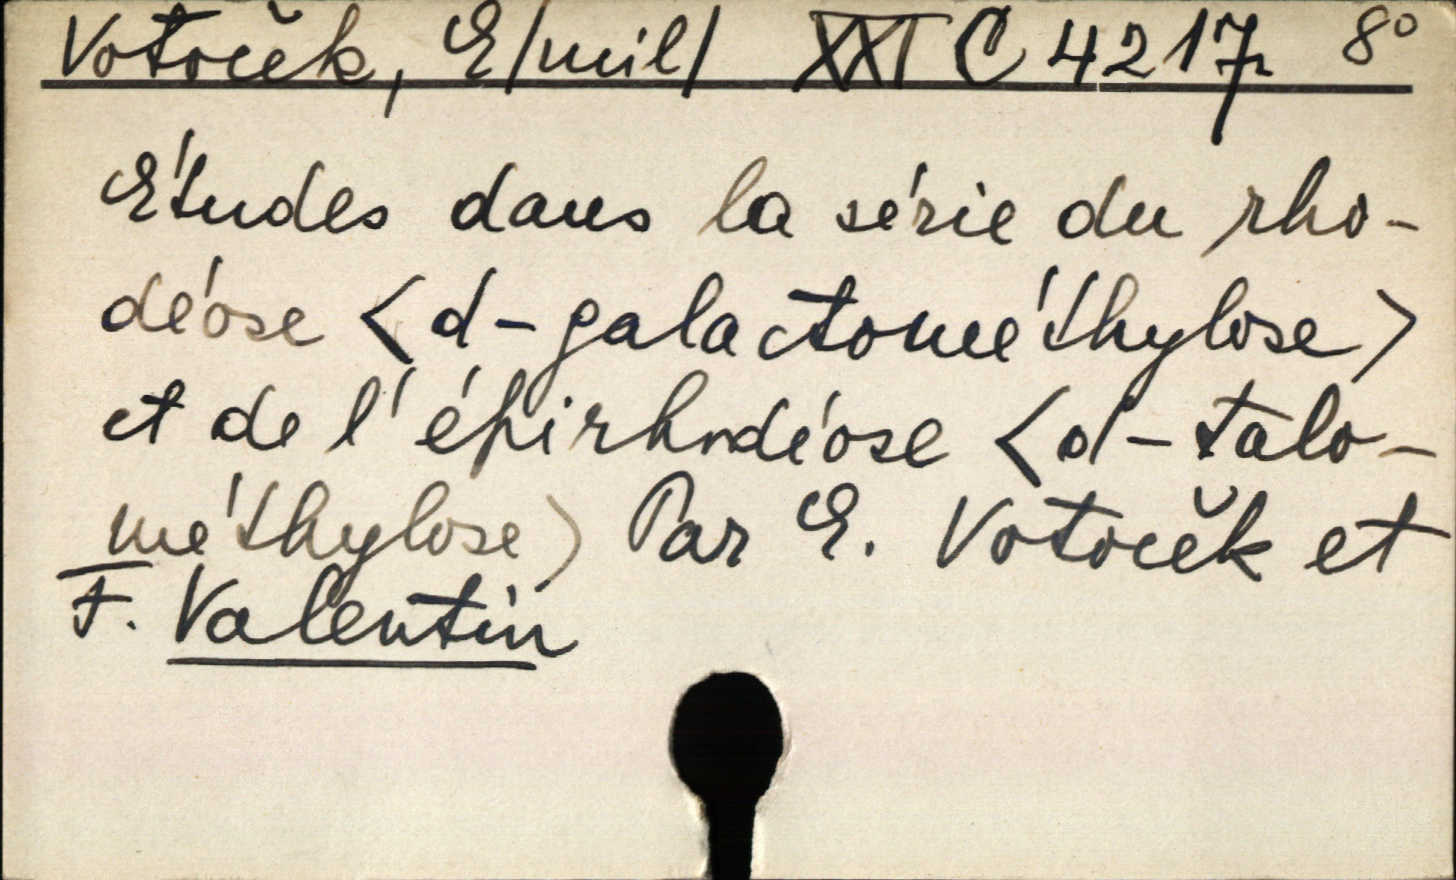 Votoček, E/mil/ XXI C 4217 8°
Études dans la série du rho-
déose <d-galactométhylose>
et de l'épirhodéose <d-talo-
méthylose> Par E. Votoček et
F. Valentin